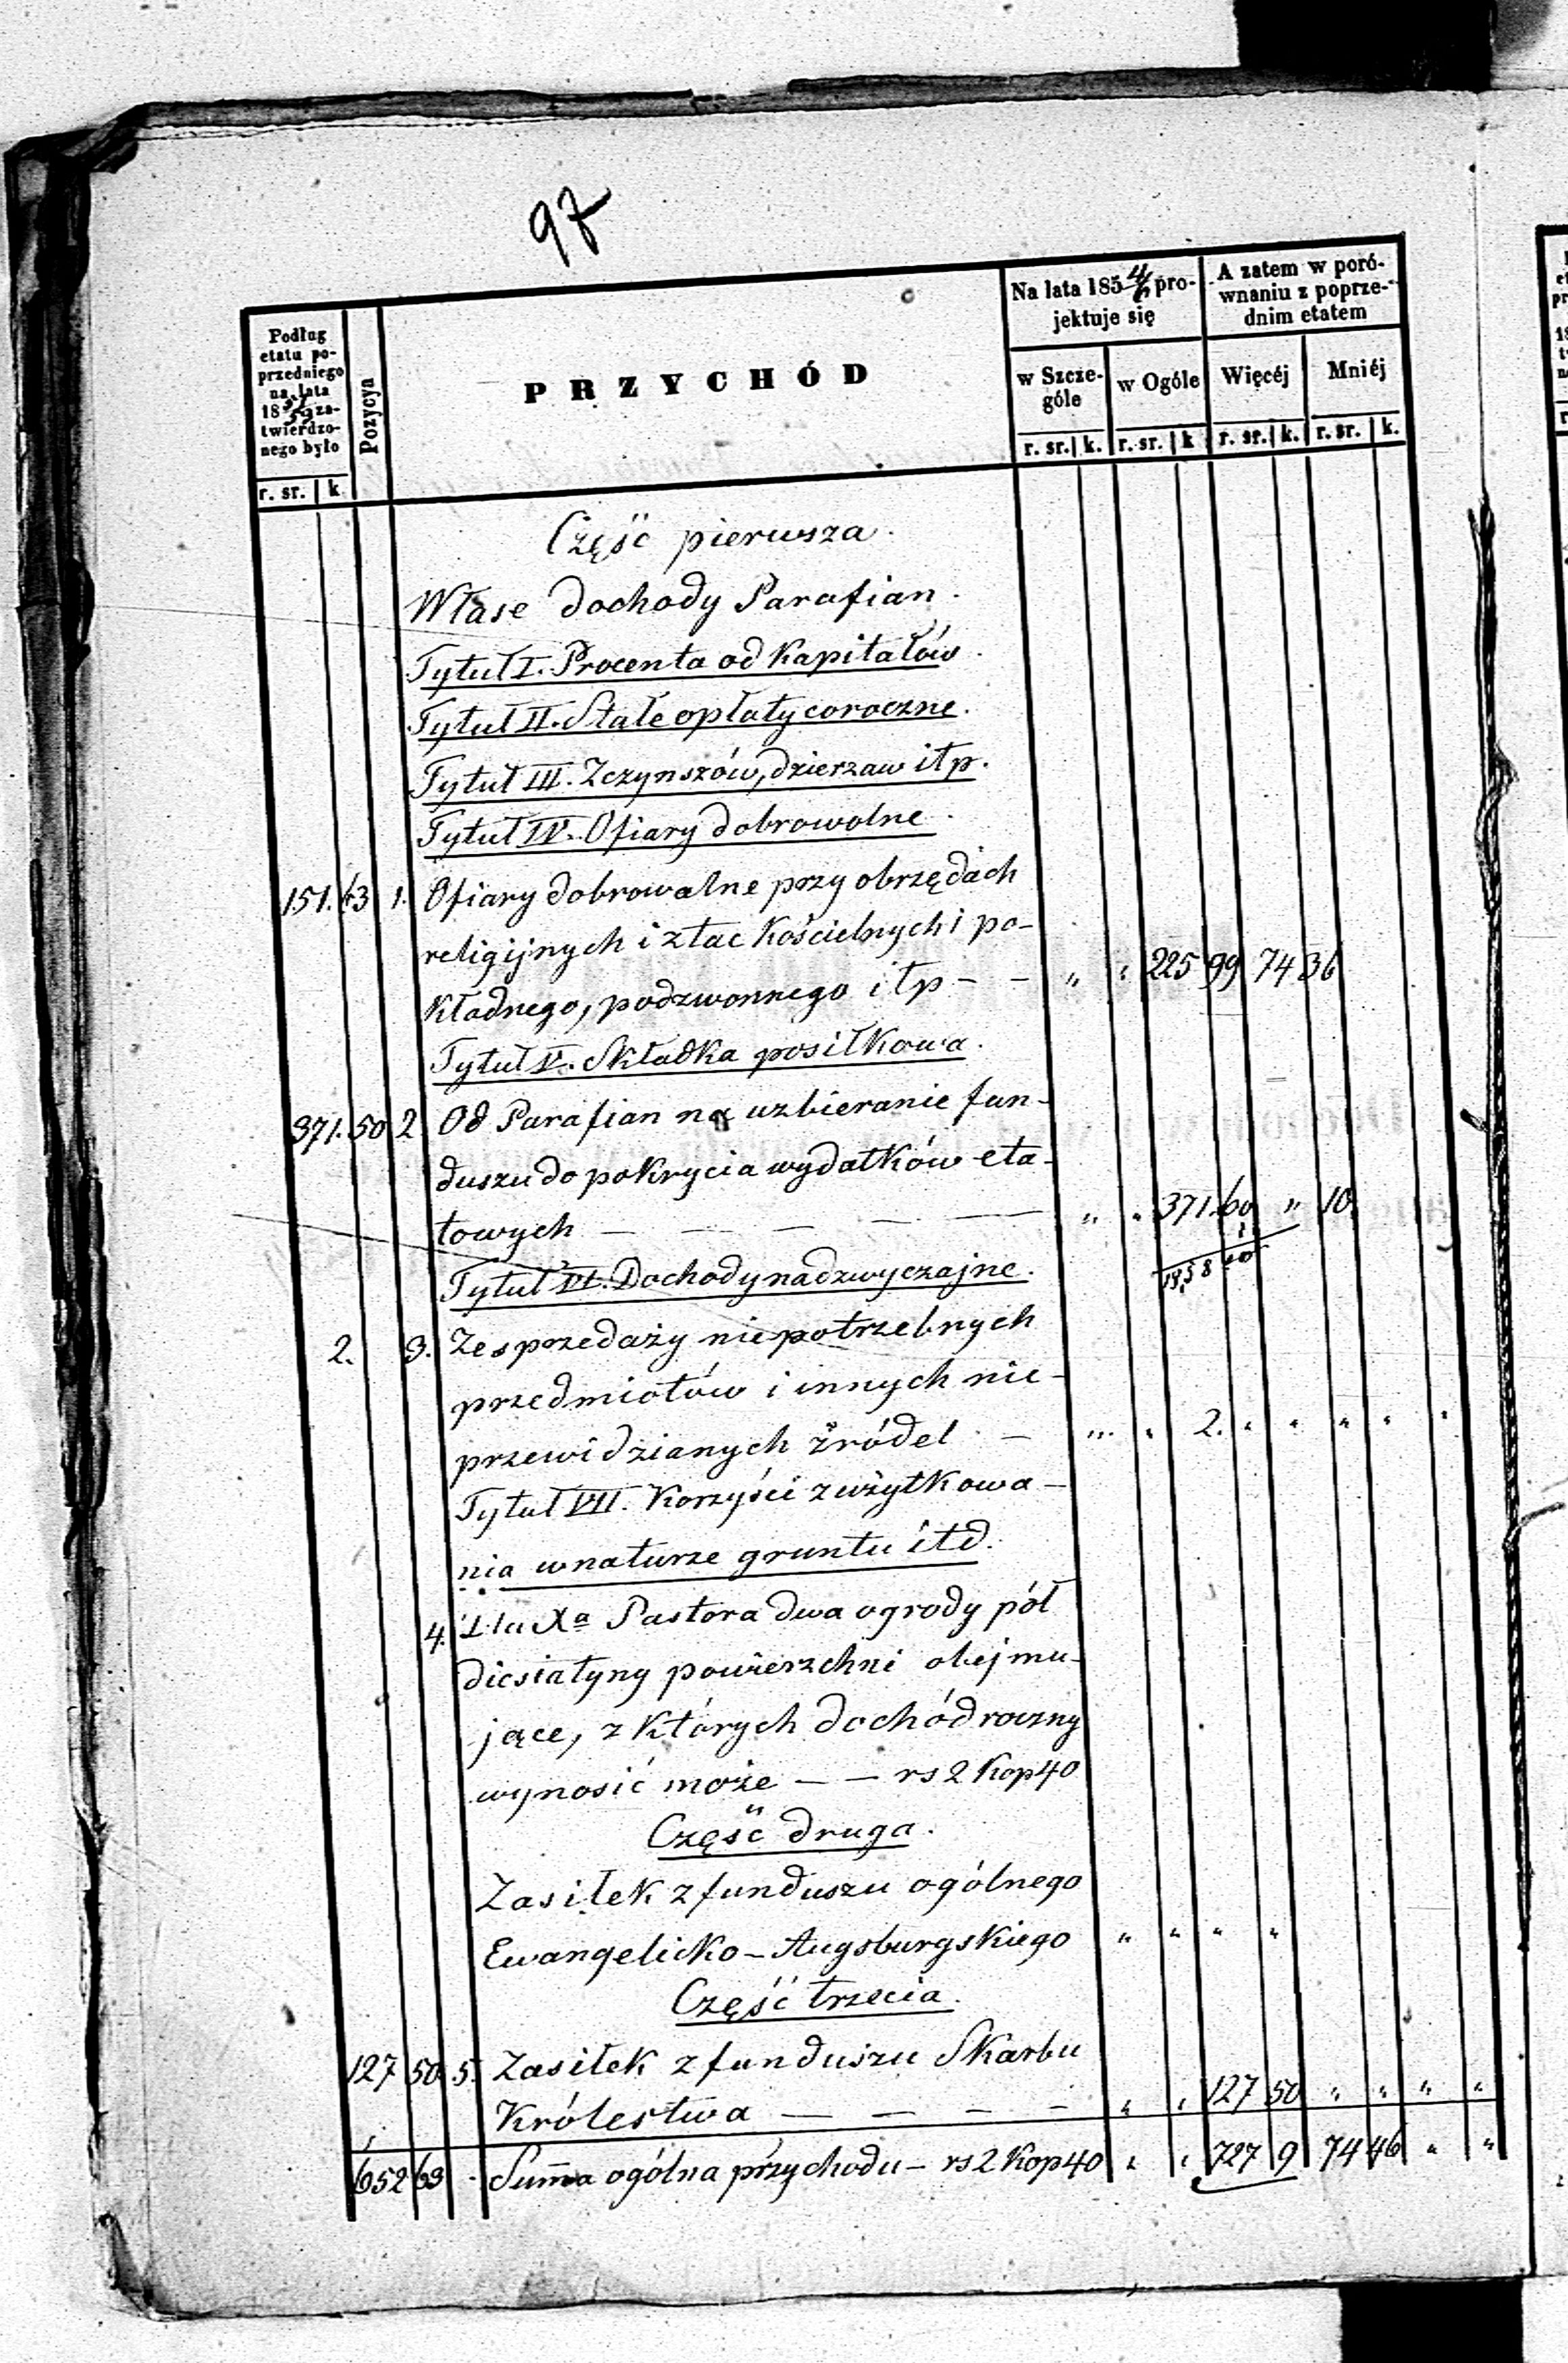 97
Podług etatu poprzedniego na lata 18 zatwierdzonego było
Pozycya
PRZYCHÓD
Na lata 185 4/6 projektuje się
A zatem w porównaniu z poprzednim etatem
w Szczególe
w Ogóle
Więcéj
Mniéj
r. sr. k. r. sr. k r. sr. k. r. sr. k.
r. sr. k
Część pierwsza.
Włase dochody Parafian.
Tytuł I. Procenta od Kapitałów.
Tytuł II. Stałe opłaty coroczne.
Tytuł III. Z czynszów, dzierzaw itp.
Tytuł IV. Ofiary dobrowolne.
151. 63 1. Ofiary dobrowalne przy obrzędach
religijnych i z tac Kościelnych i po-
kładnego, podzwonnego itp - - " " 225 99 74 36
Tytuł V. Składka posiłkowa.
371. 50 2. Od Parafian na uzbieranie fun-
duszu do pokrycia wydatków eta-
towych — — — — — " " 371. 60 " 10.
Tytuł VI. Dochody nadzwyczajne.
2. 3. Ze sprzedaży niepotrzebnych
przedmiotów i innych nie-
przewidzianych źródeł - " " 2. " " " " "
Tytuł VII. Korzyści z użytkowa-
nia w naturze gruntu itd.
4. Dla Xa Pastora dwa ogrody pół
diesiatyny powierzchni obejmu-
jące, z których dochód roczny
wynosić może — — rs 2 Kop 40
Część druga.
Zasiłek z funduszu ogólnego
Ewangelicko-Augsburgskiego " " " "
Część trzecia.
127 50. 5. Zasiłek z funduszu Skarbu
Królestwa — — — — " " 127 50 " " " "
652 63 - Summa ogólna przychodu - rs 2 Kop 40 " " 727 9 74 46 " "